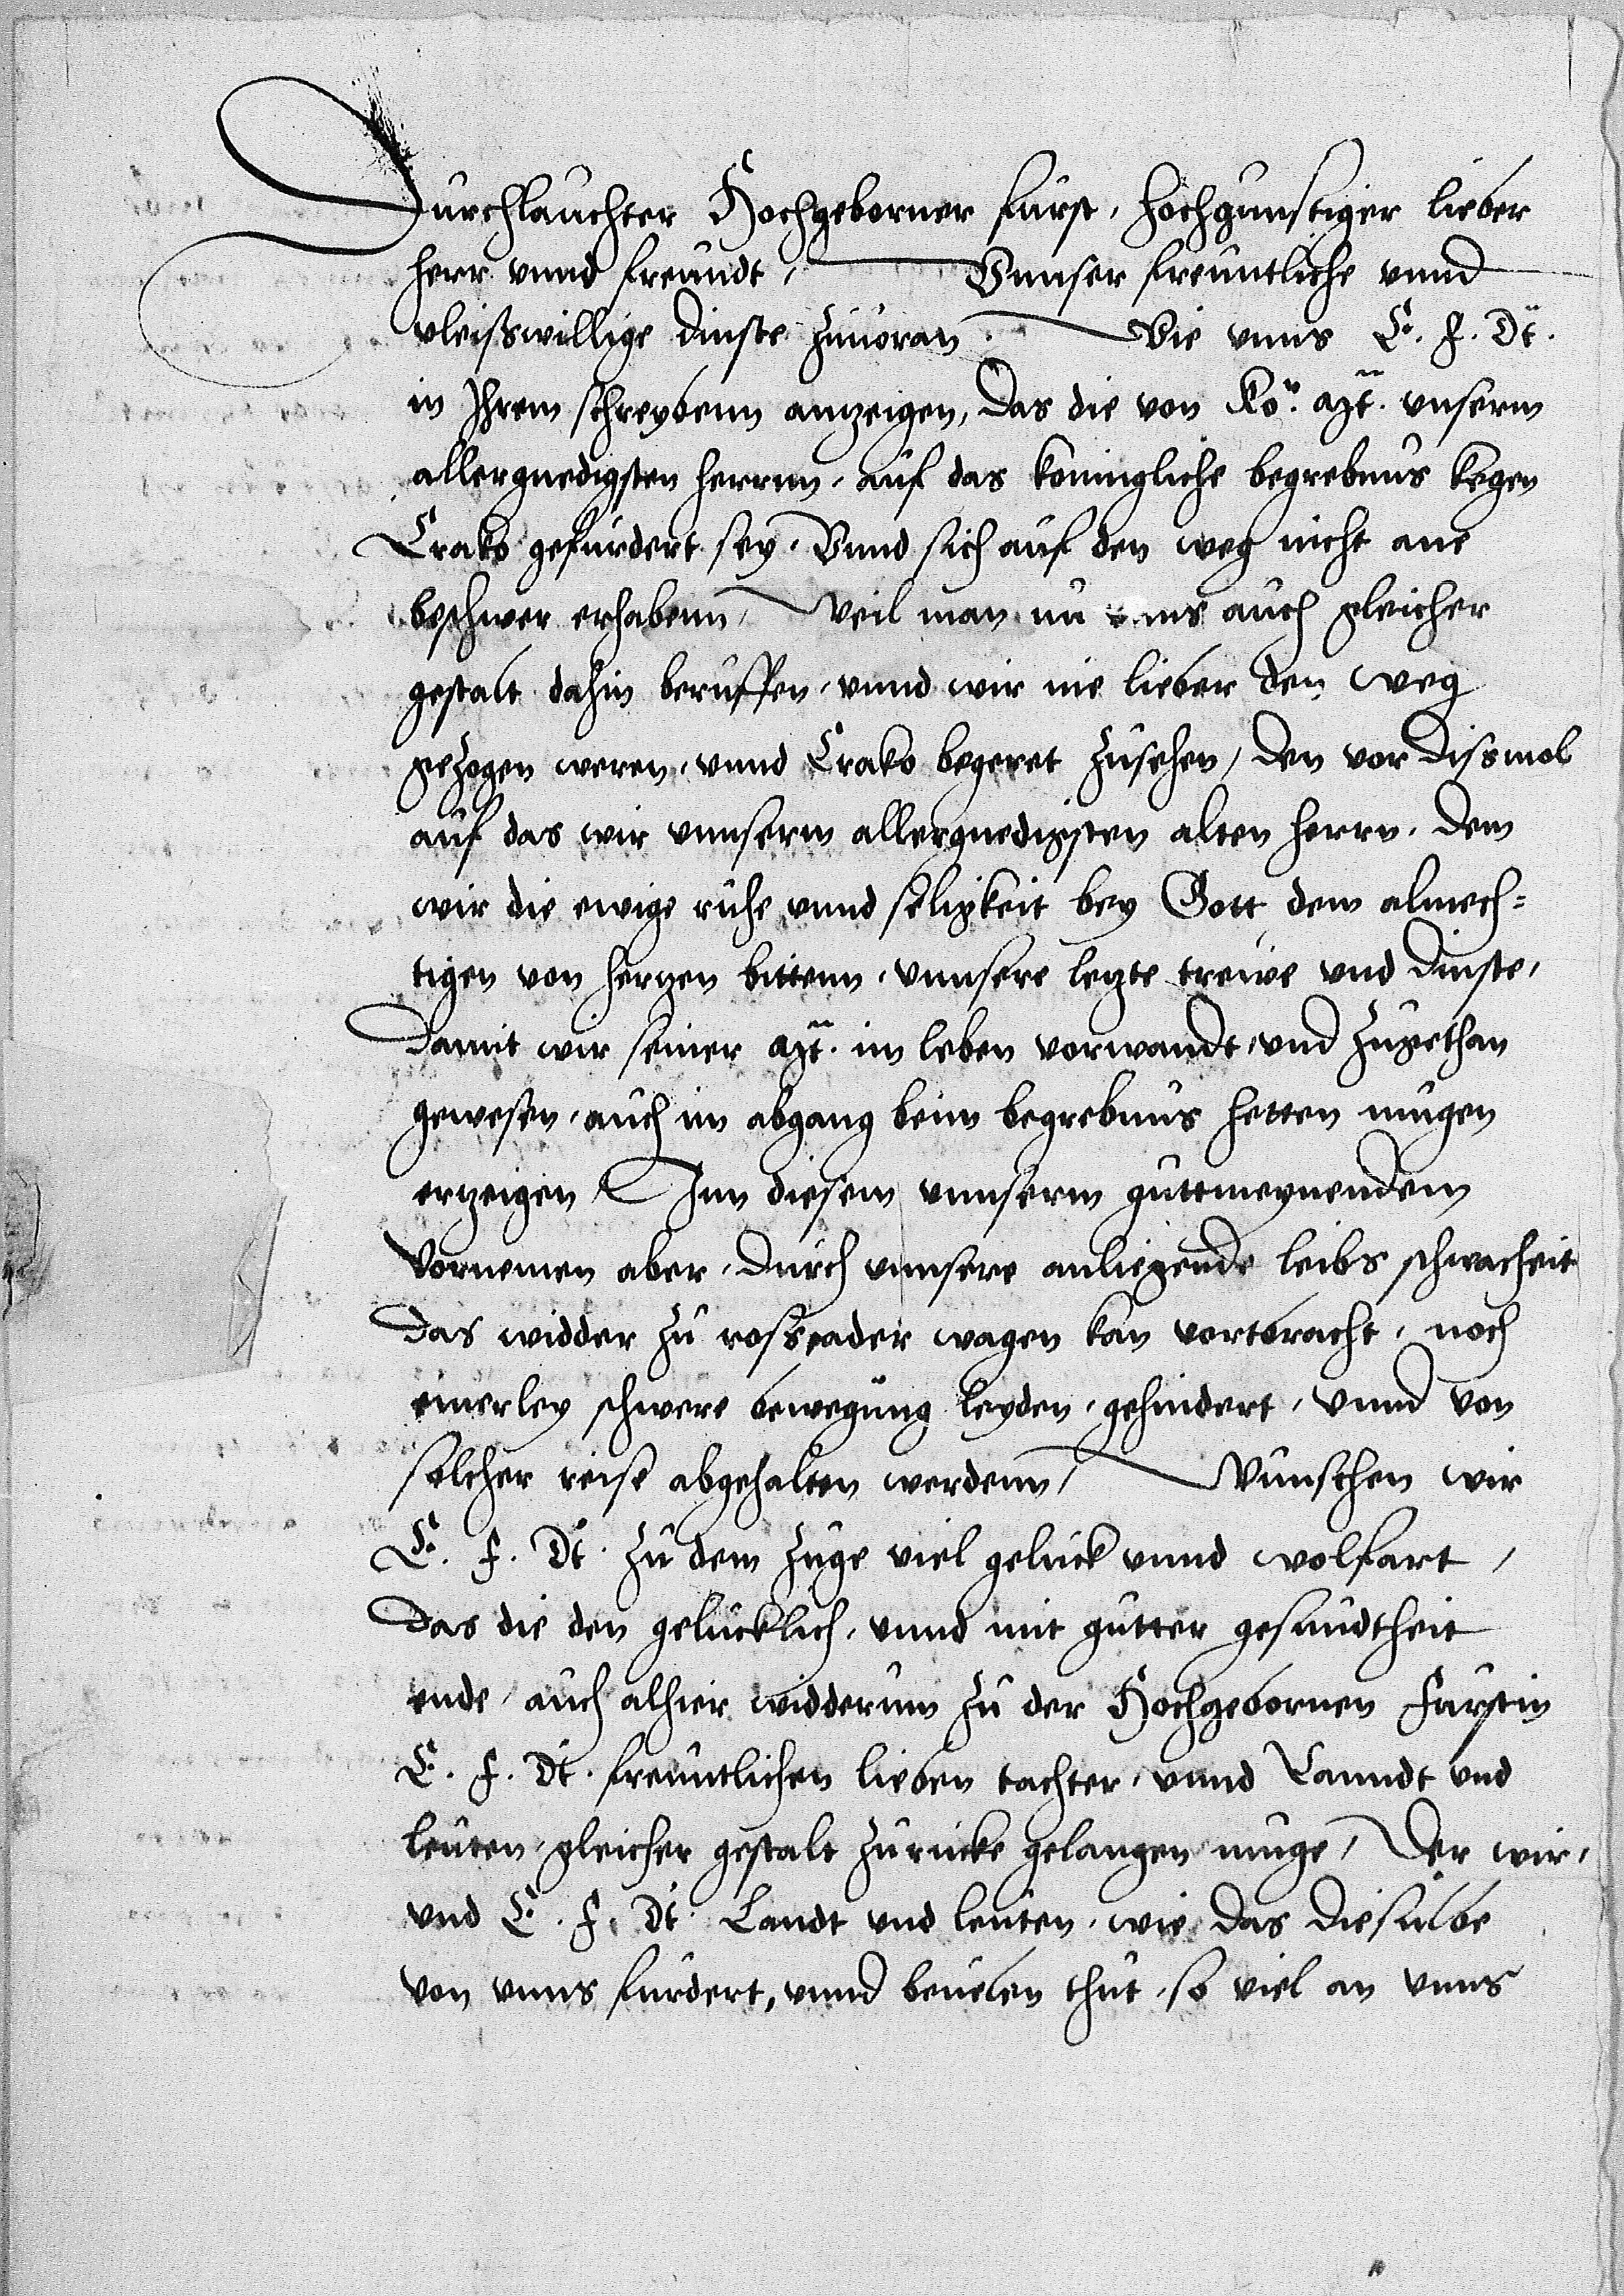 Durchlauchter Hochgeborner furst, hochgunstiger lieber
herr vnnd freundt, Vnnser freuntliche vnnd
vleisswillige dinste zuuoran. Wie vnns E. F. Dt.
in Ihrem schreybenn anzeigen, Das die von Ko. Mt. vnserm
allergnedigsten herrnn, auf das koningliche begrebnus kegen
Crako gefurdert sey, Vnnd sich auf den weg nicht ane
beschwer erhabenn, Weil man nu vnns auch gleicher
gestalt dahin beruffen, vnnd wir nie lieber den weg
gezogen weren, vnnd Crako begeret zusehen, den vor dissmol
auf das wir vnnserm allergnedigsten alten herrn, dem
wir die ewige ruhe vnnd seligkeit bey Gott dem almech=
tigen von hertzen bittenn, vnnsere letzte treuwe vnd dinste,
Damit wir seiner Mt. im leben vorwandt, vnd zugethan
gewesen, auch im abgang beim begrebnus hetten mugen
erzeigen, Inn diesem vnnserm guttmeynendem
Vornemen aber, durch vnnsere anliegende leibs schwacheit
Das widder zu ross, ader wagen kan vortbracht, noch
einerley schwere bewegung leyden, gehindert, vnnd von
solcher reise abgehalten werdenn, Wunschen wir
E. F. Dt. zu dem zuge viel geluck vnnd wolfart,
Das die den gelucklich, vnnd mit gutter gesundtheit
ende, auch alhier widderum zu der Hochgebornen Furstin
E. F. Dt. freuntlichen lieben tochter, vnnd Lanndt vnd
leuten, gleicher gestalt zurucke gelangen muge, Der wir,
vnd E. F. Dt. Landt vnd leuten, wie das dieselbe
von vnns furdert, vnnd beuelen thut, so viel an vnns